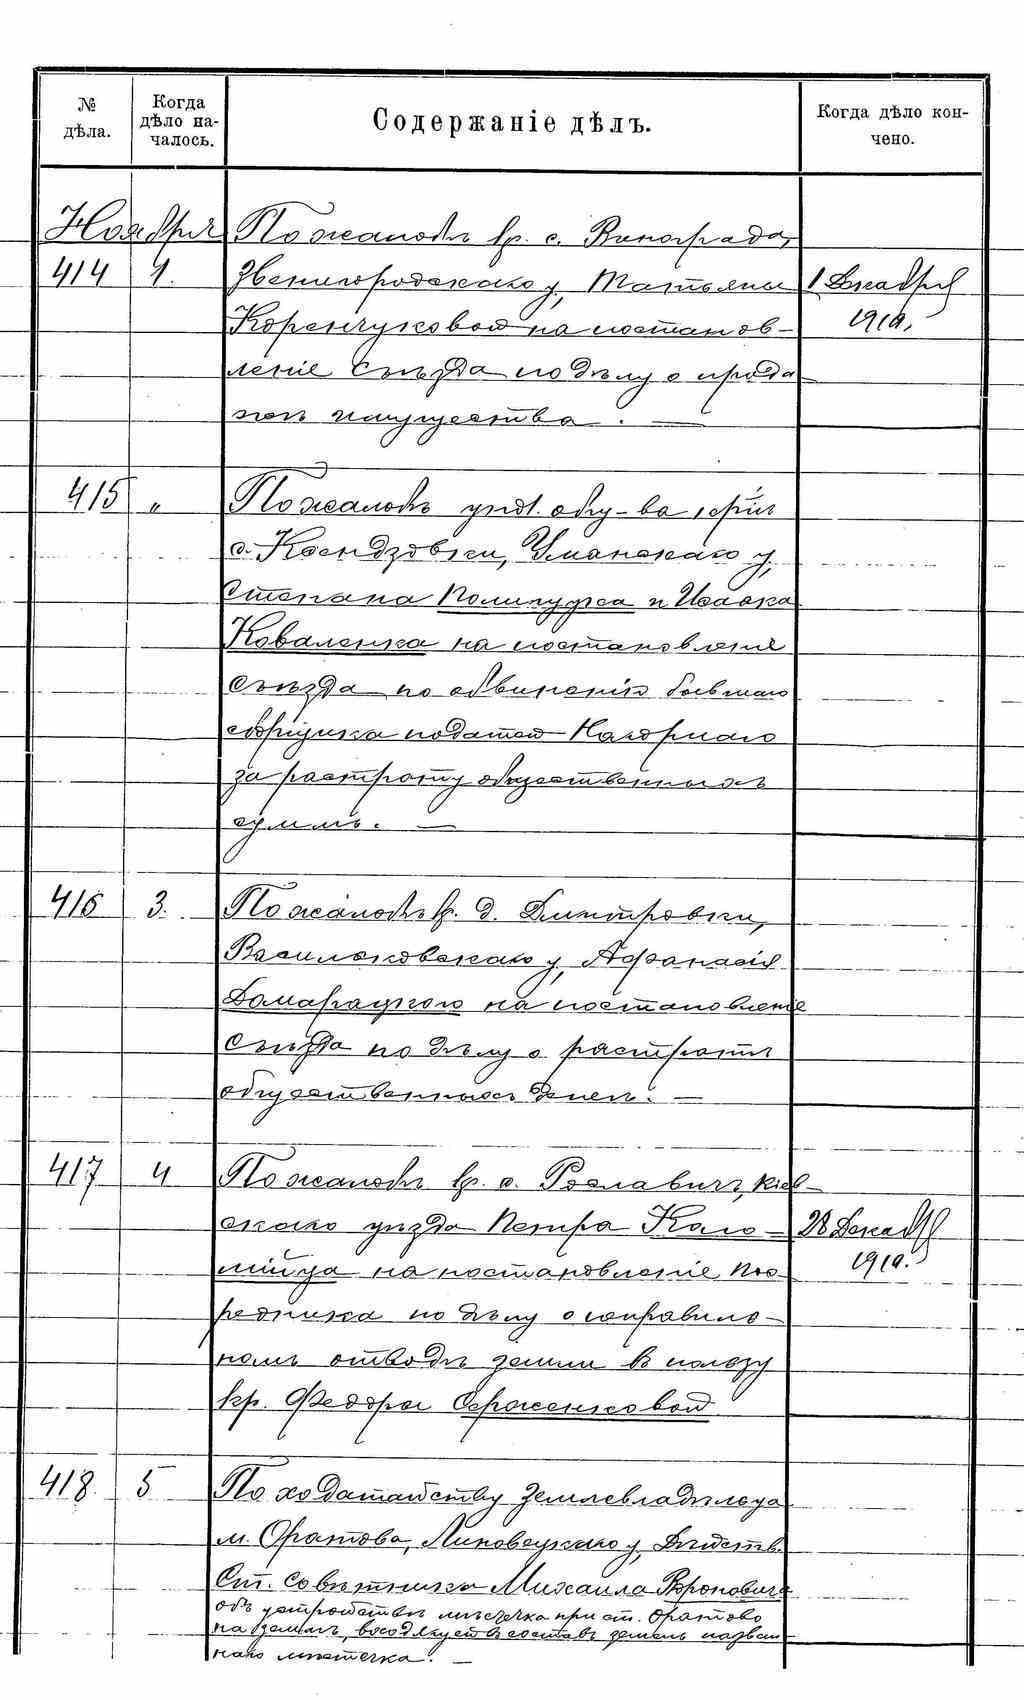 № дѣла.
Когда дѣло началось.
Содержаніе дѣлъ.
Когда дѣло кончено.
Ноября
По жалобѣ кр. с. Винограда,
414 1. Звенигородскаго у, Татьяны 1 Декабря
Коренчуковой на постанов- 1910.
леніе съѣзда по дѣлу о прода
жѣ имущества. —
415 " По жалобѣ упол. общ-ва, крест
с. Ксендзовки, Уманскаго у,
Степана Полипуджа и Исаака
Коваленка на постановленіе
съѣзда по обвиненію бывшаго
сборщика податей
за растрату общественныхъ
суммъ. —
416 3. По жалобѣ кр. д. Дмитровки,
Васильковскаго у, Афанасія
Домарацкого на постановленіе
съѣзда по дѣлу о растратѣ
общественныхъ денегъ. —
417 4 По жалобѣ кр. с. Рославичъ, Кіев-
скаго уѣзда Петра Коло- 28 Декабря
мійца на постановленіе пос- 1910.
редника по дѣлу о неправиль-
номъ отводѣ земли въ пользу
кр. Федоры
418 5 По ходатайству землевладѣльца
м. Оратова, Липовецкаго у, Дѣйств.
Ст. Совѣтника Михаила Вороновича
объ устройствѣ мѣстечка при ст. Оратово
на землѣ, входящей въ составъ земель назван-
наго мѣстечка. —